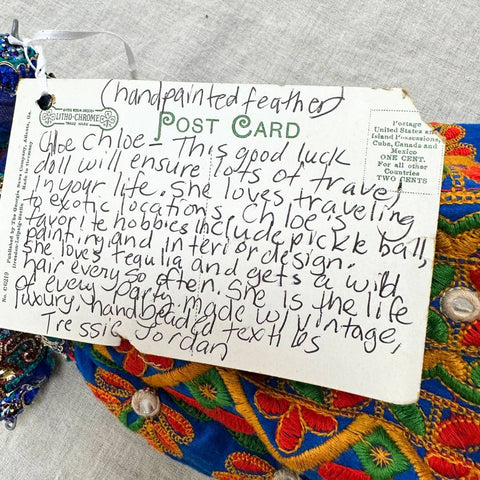 (handpainted feather)
LITHO-CHROME
TRADE MARK
POST CARD
Postage
United States and
Island Possessions
Cuba, Canada and
Mexico
ONE CENT.
For all other
Countries
TWO CENTS
Chloe Chloe - This good luck
doll will ensure lots of travel
in your life. She loves traveling
to exotic locations. Chloe's
favorite hobbies include pickle ball,
painting and interior design.
She loves tequlia and gets a wild
hair every so often. She is the life
of every party. made w/ vintage,
luxury, hand beaded textiles
Tressie Jordan
Published by The Georgia News Company, Atlanta, Ga.
Dresden-Leipzig-Berlin
Made in Germany